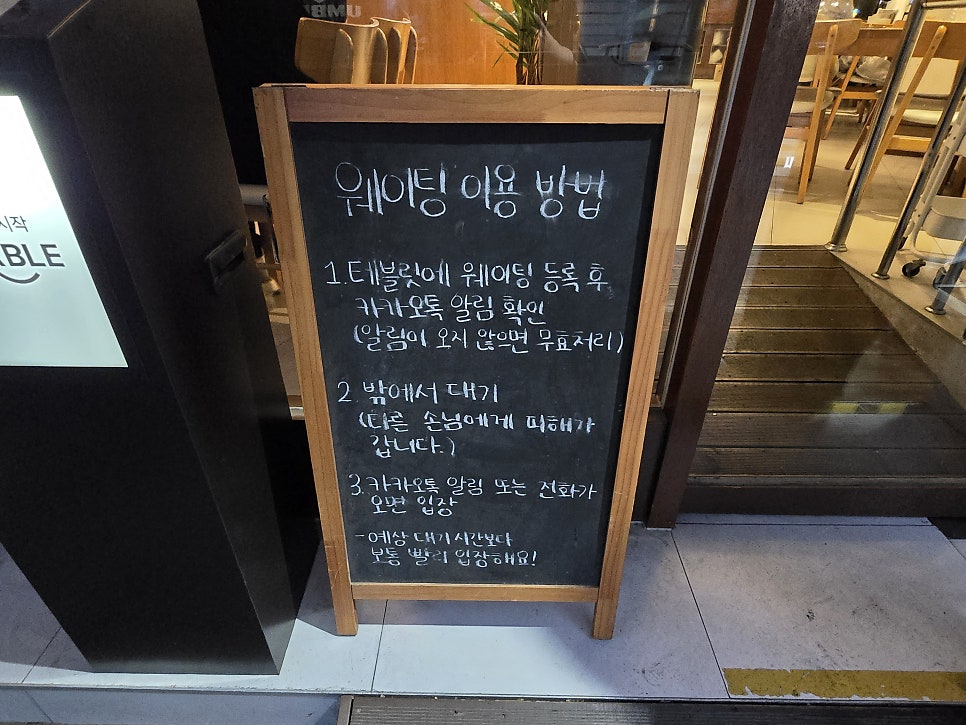 웨이팅 이용 방법
1. 테블릿에 웨이팅 등록 후
카카오톡 알림 확인
(알림이 오지 않으면 무효처리)
2. 밖에서 대기
(다른 손님에게 피해가
갑니다.)
3. 카카오톡 알림 또는 전화가
오면 입장
- 예상 대기 시간보다
보통 빨리 입장해요!
시작
ABLE
UMBI